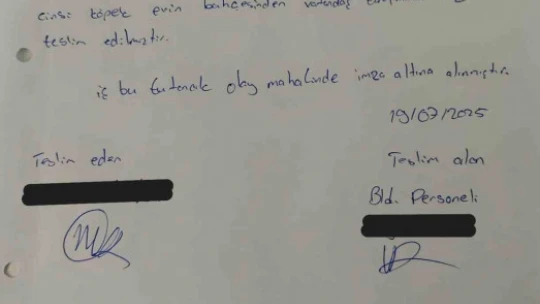 cinsi köpek evin bahçesinden vatandaş
teslim edilmiştir.
iş bu tutanak olay mahalinde imza altına alınmıştır.
19/07/2025
Teslim eden Teslim alan
Bld. Personeli